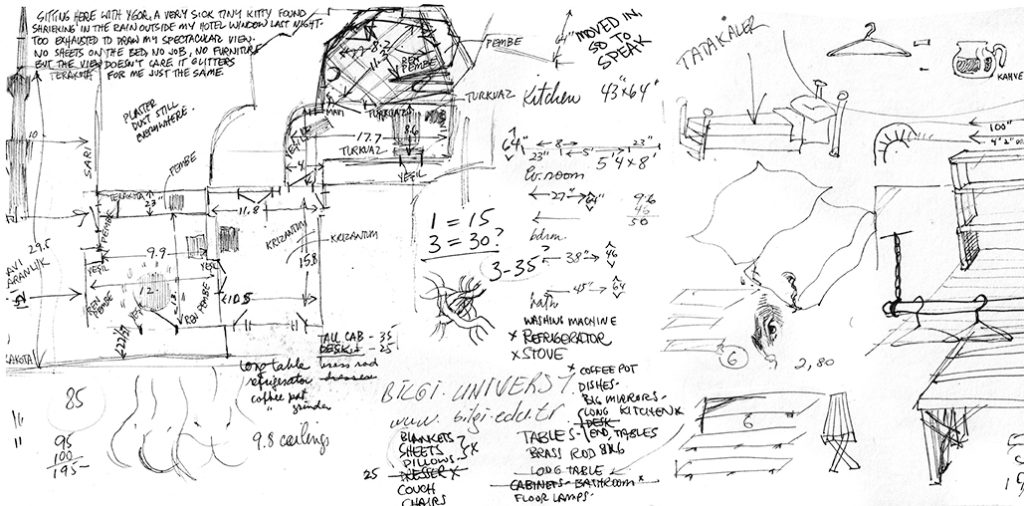 SITTING HERE WITH YGOR, A VERY SICK TINY KITTY FOUND
SHRIEKING IN THE RAIN OUTSIDE MY HOTEL WINDOW LAST NIGHT.
TOO EXHAUSTED TO DRAW MY SPECTACULAR VIEW.
NO SHEETS ON THE BED, NO JOB, NO FURNITURE
BUT THE VIEW DOESN'T CARE IT GLITTERS
FOR ME JUST THE SAME.
TERAKOTA
PLASTER
DUST STILL
EVERYWHERE.
10
SARI
PEMBE
TERAKOTA
23"
11.8
29.5
PEMBE
9.9
YEŞİL
YEŞİL
12
10.5
KRIZANTIM
KRIZANTIM
15.8
8.2
11.2
PEMBE
PEMBE
MAVI
TURKUAZ
TURKUAZ
YEŞİL
17.7
8.6
TURKUAZ
YEŞİL
MOVED IN,
GO TO
SPEAK
Kitchen 43"x64"
64"
8
23"
5'
23"
5'4 x 8'
liv. room
27"
64"
96
50
bdrm
38"
46
45"
64
bath
1 = 15
3 = 30?
3-35?
WASHING MACHINE
x REFRIGERATOR
x STOVE
x COFFEE POT
DISHES-
BIG MIRRORS-
LONG KITCHEN
DESK
TABLES- END TABLES
BRASS ROD
LONG TABLE
CABINETS- BATHROOM x
FLOOR LAMPS-
TALL CAB - 35
DESK - 25
long table brass rod
refrigerator dresser
coffee pot
" grinder
9.8 ceilings
BİLGİ. UNIVERSY.
www.bilgi.edu.tr
BLANKETS
SHEETS
PILLOWS-
25 DRESSER x
COUCH
CHAIRS
85
95
100
195-
TATAKALER
KAHVE
100"
6
2,80
6